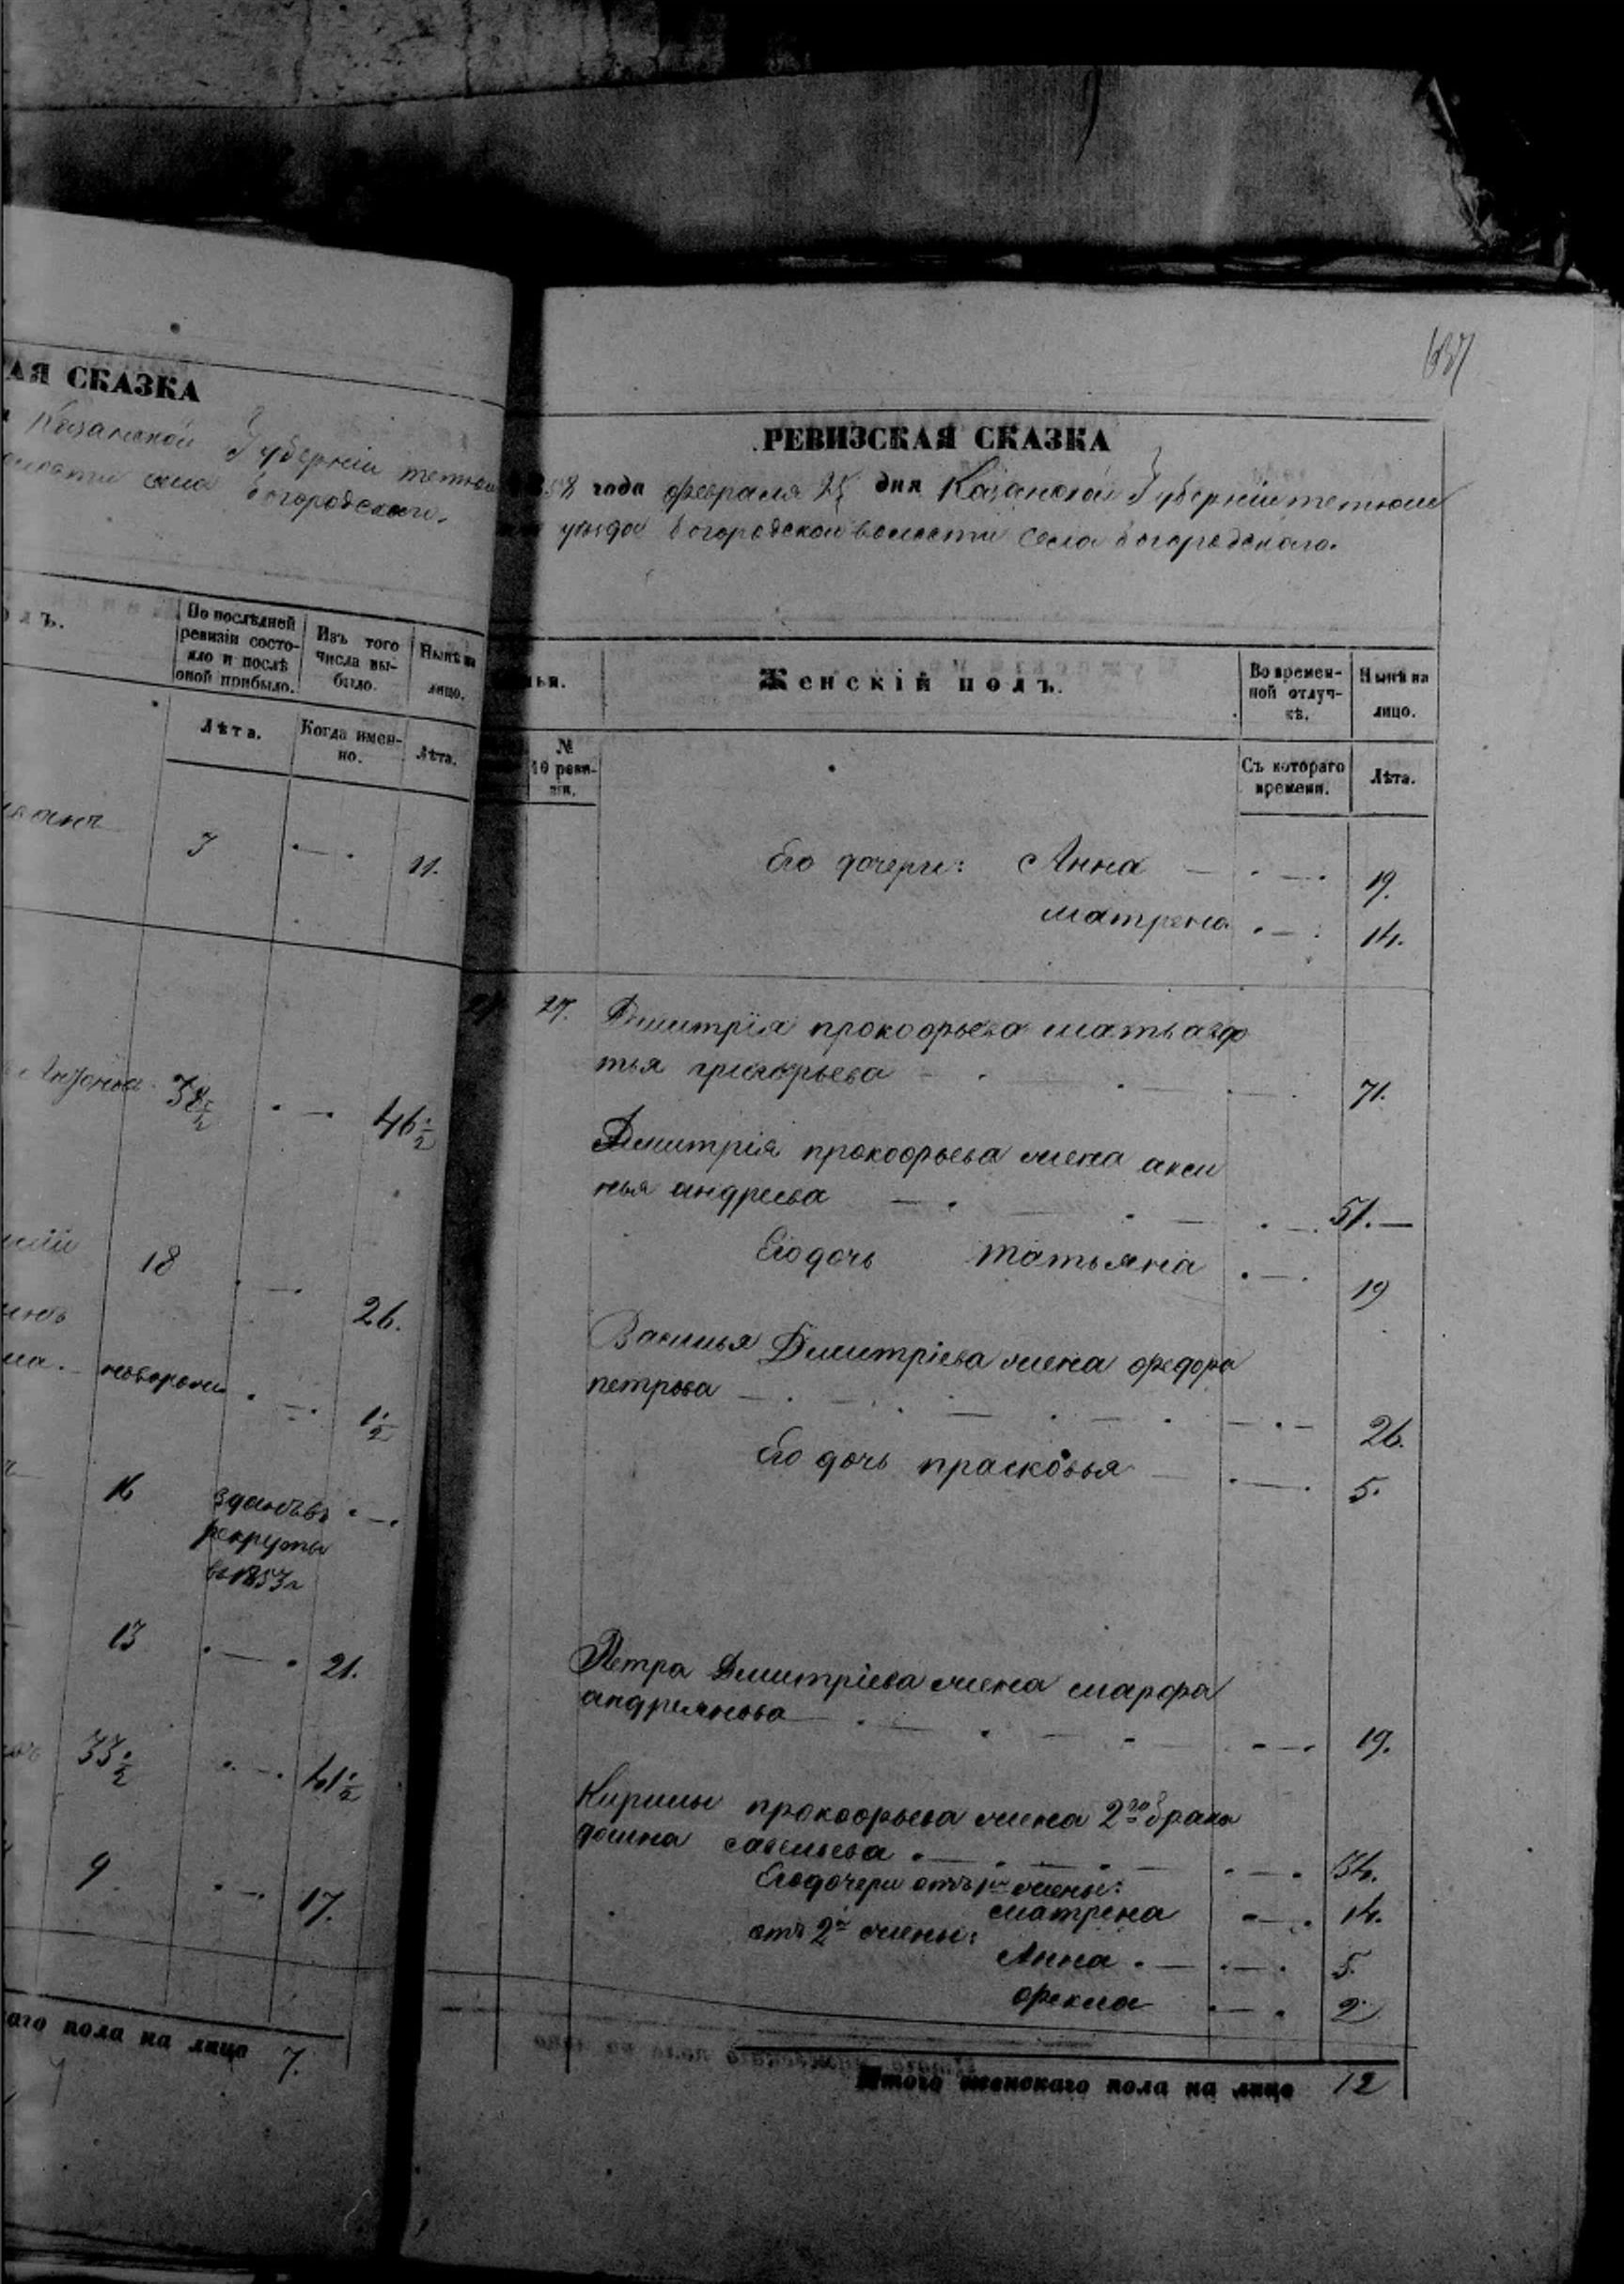 АЯ СКАЗКА
Казанской Губерніи тетюш
села богородскаго.
олъ.
По послѣдней ревизіи состояло и послѣ оной прибыло.
Изъ того числа выбыло.
Нынѣ на лицо.
Лѣта.
Когда именно.
Лѣта.
3 11.
38½ 46½
18 26.
новорож 1½
16 зданъ въ
рекруты
въ 1853 г
13 21.
33½ 41½
9 17.
аго пола на лицо 7.
637
РЕВИЗСКАЯ СКАЗКА
858 года февраля дня Казанской Губерніи тетюш
уѣзда богородской волости села богородскаго.
ьи.
Женскій полъ.
Во временной отлучкѣ.
Нынѣ на лицо.
№ 10 ревизіи.
Съ котораго времени.
Лѣта.
Его дочери: Анна 19.
матрена 14.
27 27. Димитрія прокофьева мать агаф
тья григорьева 71.
Димитрія прокофьева жена акси
нья андреева 51.
Его дочь татьяна 19
Василья Димитріева жена федора
петрова 26.
Его дочь прасковья 5.
Петра Димитріева жена марфа
андреянова 19.
Кирилы прокофьева жена 2го брака
домна савельева 34.
Его дочери отъ 1й жены:
матрена 14.
отъ 2й жены:
Анна 5.
фекла 2
Итого женскаго пола на лицо 12